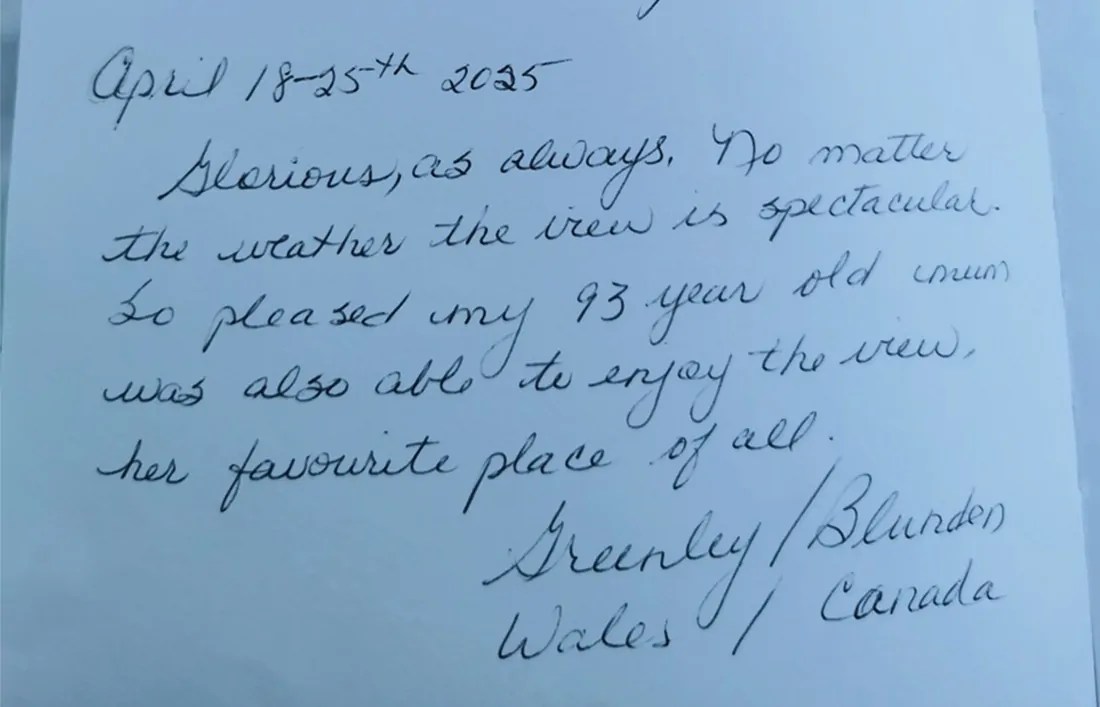 April 18-25th 2025
Glorious, as always. No matter
the weather the view is spectacular.
So pleased my 93 year old mum
was also able to enjoy the view,
her favourite place of all.
Greenley / Blunden
Wales / Canada